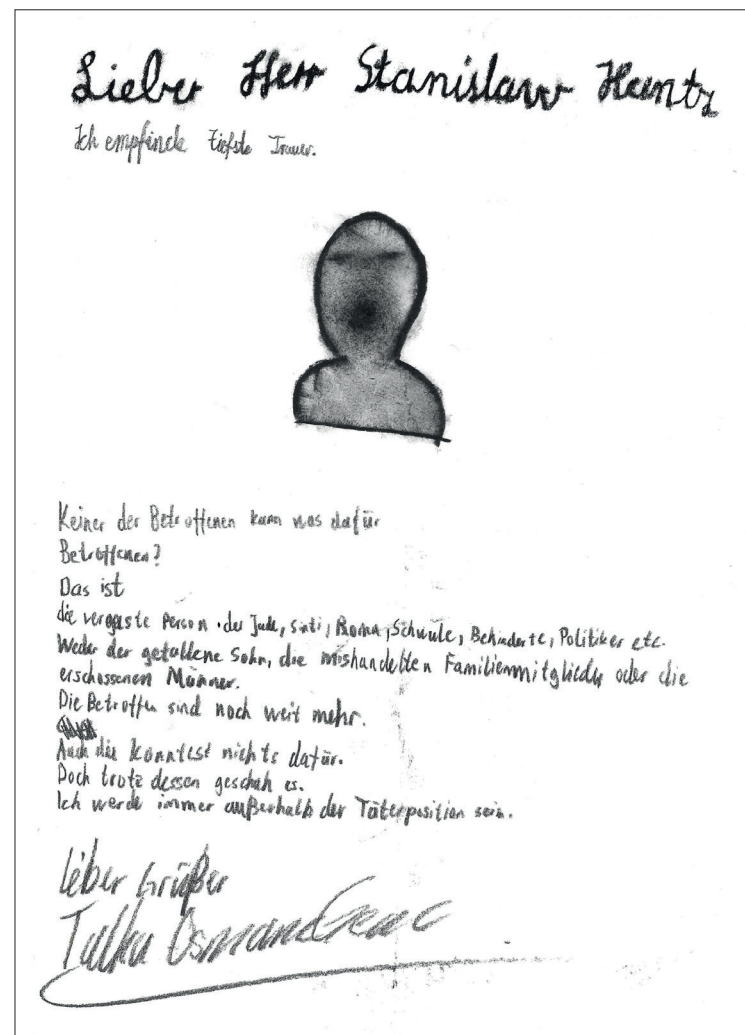 Lieber Herr Stanislaw Hantz
Ich empfinde tiefste Trauer.
Keiner der Betroffenen kann was dafür
Betroffenen?
Das ist
die vergaste Person der Jude, Sinti, Roma, Schwule, Behinderte, Politiker etc.
Weder der gefallene Sohn, die mishandelten Familienmitglieder oder die
erschossenen Männer.
Die Betroffen sind noch weit mehr.
Auch die konntest nichts dafür.
Doch trotz dessen geschah es.
Ich werde immer außerhalb der Täterposition sein.
Talha Osman